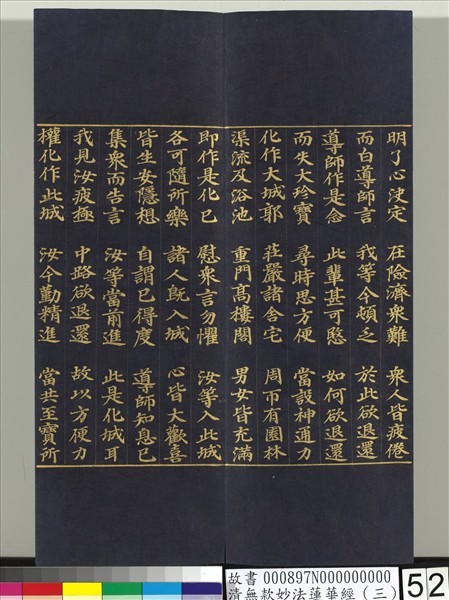 明了心決定 在險濟眾難 眾人皆疲倦
而白導師言 我等今頓乏 於此欲退還
導師作是念 此輩甚可愍 如何欲退還
而失大珍寶 尋時思方便 當設神通力
化作大城郭 莊嚴諸舍宅 周帀有園林
渠流及浴池 重門高樓閣 男女皆充滿
即作是化已 慰眾言勿懼 汝等入此城
各可隨所樂 諸人既入城 心皆大歡喜
皆生安隱想 自謂已得度 導師知息已
集眾而告言 汝等當前進 此是化城耳
我見汝疲極 中路欲退還 故以方便力
權化作此城 汝今勤精進 當共至寶所
故書 000897N000000000
清無款妙法蓮華經(三)
52